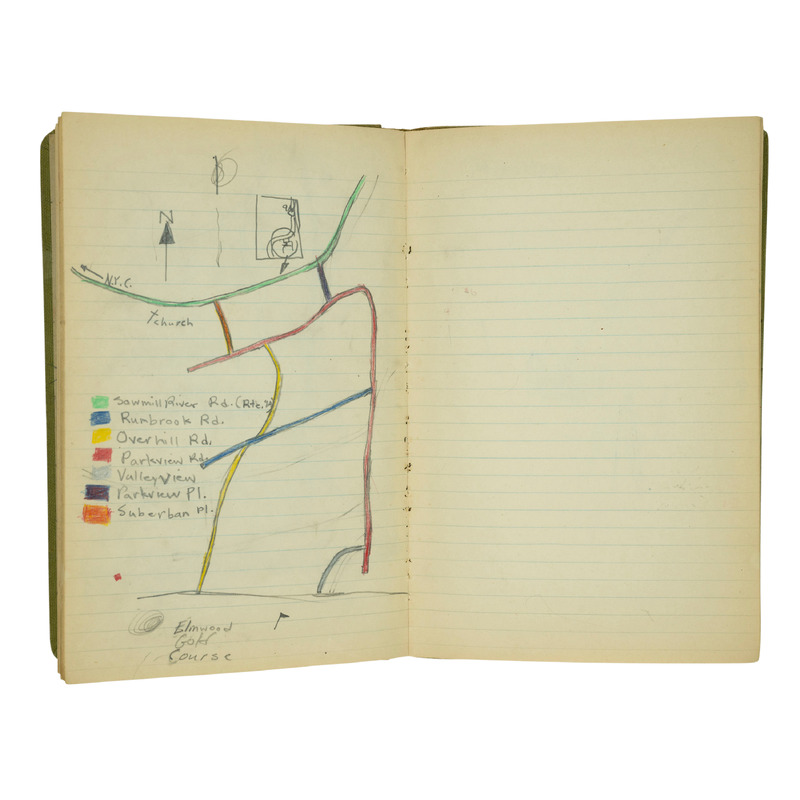 N
N.Y.C.
church
Sawmill River Rd. (Rte.
Rumbrook Rd.
Overhill Rd.
Parkview Rd.
Valleyview
Parkview Pl.
Suberban Pl.
Elmwood
Golf
Course